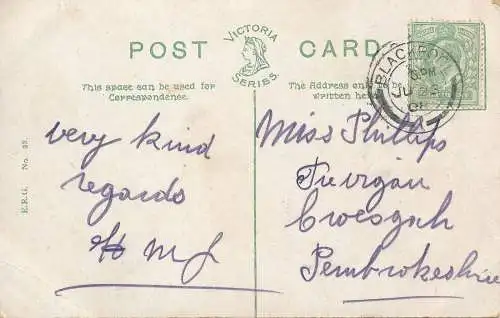 POST CARD
VICTORIA
SERIES.
This space can be used for
Correspondence.
The Address only
written here
E.R.G. No. 92.
BLACKPOOL
PM
08
very kind
regards
Miss Phillips
Croesgoch
Pembrokeshire